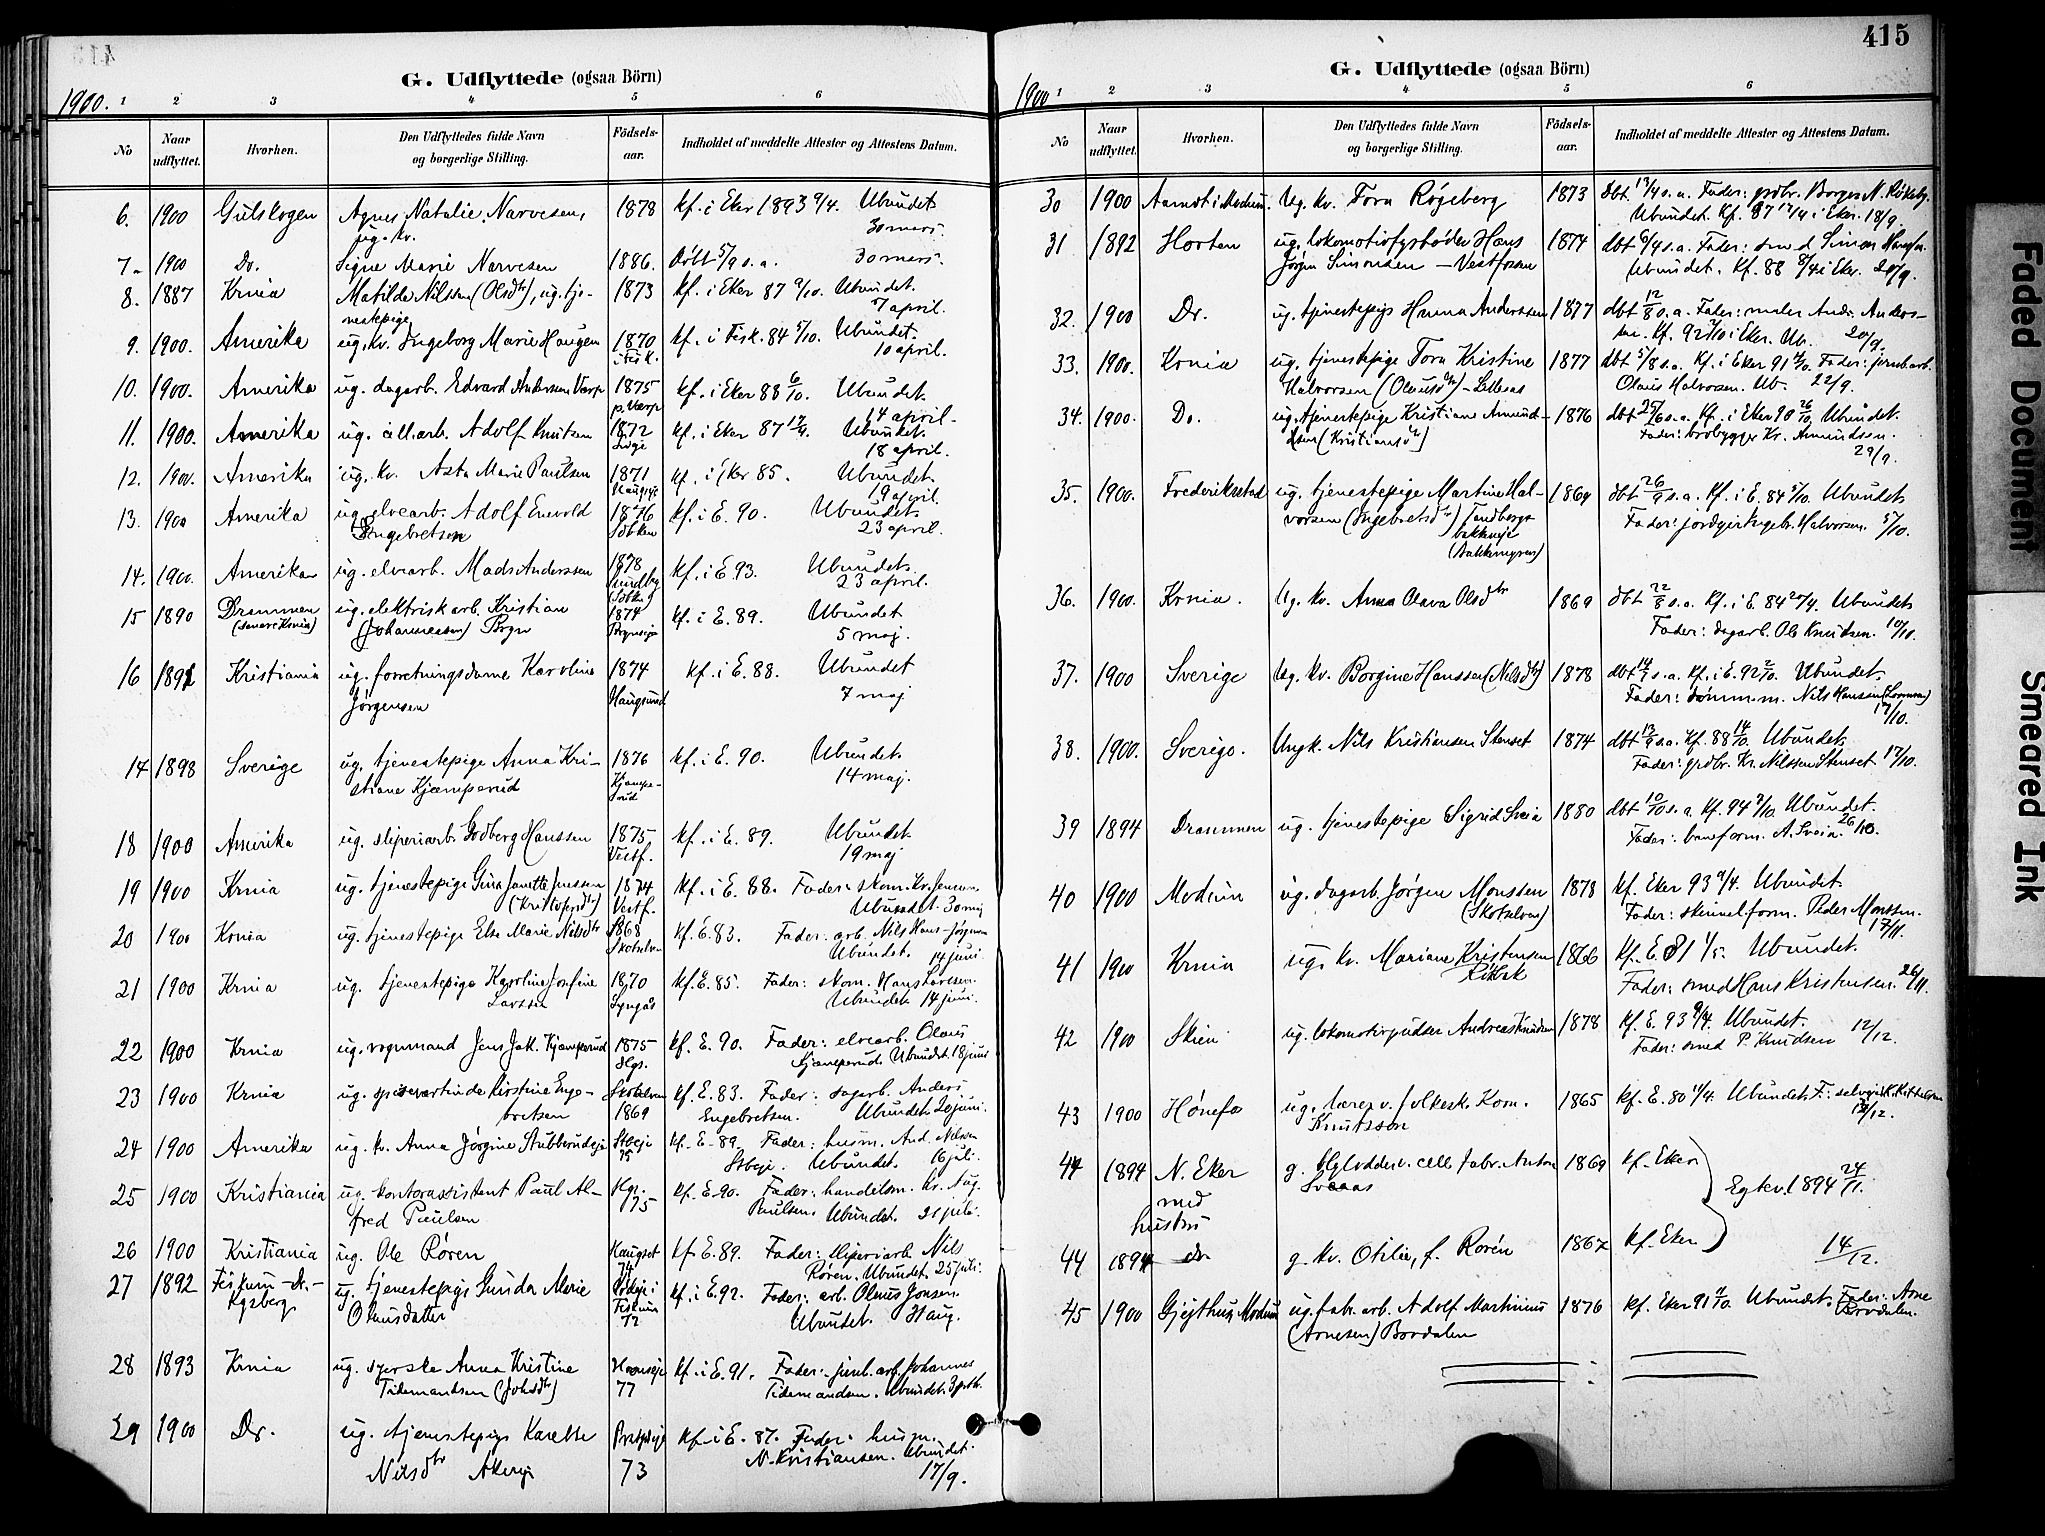 415
G. Udflyttede (ogsaa Börn)
1900.
1 2 3 4 5 6
No
Naar udflyttet.
Hvorhen.
Den Udflyttedes fulde Navn og borgerlige Stilling.
Födsels-aar.
Indholdet af meddelte Attester og Attestens Datum.
6. 1900 Gulskogen Agnes Natalie Narvesen, 1878 Kf. i Eker 1893 9/4. Ubundet
ug. kv. 30 mers.
7. 1900 Do. Signe Marie Narvesen 1886. Døbt 5/9 s. a. 30 mers.
8. 1887 Krnia Matilde Nilssen (Olsdtr), ug. tje- 1873 Kf. i Eker 87 9/10. Ubundet.
nestepige 7 april.
9. 1900. Amerika ug. kv. Ingeborg Marie Haugen 1870 Kf. i Fisk. 84 5/10. Ubundet.
i Fisk. 10 april.
10. 1900. Amerika ug. dagarb. Edvard Andersen Værp 1875 Kf. i Eker 88 6/10. Ubundet.
p. Værp 14 april.
11. 1900. Amerika ug. all. arb. Adolf Knutsen 1872 Kf. i Eker 87 17/4. Ubundet.
18 april.
12. 1900. Amerika ug. kv. Asta Marie Paulsen 1871 Kf. i Eker 85. Ubundet.
19 april.
13. 1900 Amerika ug. elvearb. Adolf Enevold 1876 Kf. i E. 90. Ubundet.
Engebretsen 23 april.
14. 1900. Amerika ug. elvearb. Mads Anderssen 1878 Kf. i E. 93. Ubundet.
23 april.
15 1890 Drammen ug. elektrisk arb. Kristian 1874 Kf. i E. 89. Ubundet
(senere Krnia) (Johannessen) 5 maj.
16 1892 Kristiania ug. forretningsdame Karoline 1874 Kf. i E. 88. Ubundet
Jörgensen Haugsund 7 maj
17 1898 Sverige ug. tjenestepige Anna Kri- 1876 Kf. i E. 90. Ubundet.
stiane Kjæmperud Kjæmpe-rud 14 maj.
18 1900 Amerika ug. sliperiarb. Godberg Hanssen 1875 Kf. i E. 89. Ubundet.
Vestf. 19 maj
19 1900 Krnia ug. tjenestepige Gina Janette Jenssen 1874 Kf. i E. 88. Fader: skom. Kr. Jensen
(Kristofersdtr) Vestf. Ubundet. 30 maj
20 1900 Krnia ug. tjenestepige Else Marie Nilsdtr 1868 Kf. E. 83. Fader: arb. Nils Hans-Jörgensen
Ubundet. 14 juni.
21 1900 Krnia ug. tjenestepige Karoline Josefine 1870 Kf. E. 85. Fader: skom. Hans Larssen.
Larssen Ubundet. 14 juni.
22 1900 Krnia ug. vognmand Jens Jak. Kjæmperud 1875 Kf. E. 90. Fader: elvearb. Olaus
Hgs. Kjæmperud. Ubundet. 18 juni
23 1900 Krnia ug. spisevertinde Kirstine Enge- Skotselven Kf. E. 83. Fader: sagarb. Anders
bretsen 1869 Engebretsen. Ubundet. 20 juni.
24 1900 Amerika ug. kv. Anna Jörgine Stubberudeje 75 Kf. E. 89. Fader: husm. And. Nilssen
Ubundet. 16 juli.
25 1900 Kristiania ug. kontorassistent Paul Al- Hgs. Kf. E. 90. Fader: handelsm. Kr. Aug.
fred Paulsen 75 Paulsen. Ubundet. 21 juli.
26 1900 Kristiania ug. Ole Røren Kf. E. 89. Fader: sliperiarb. Nils
74 Røren. Ubundet. 25 juli.
27 1892 Fiskum - Dr. - ug. tjenestepige Gunda Marie Kf. i E. 92. Fader: arb. Olaus Jonsen.
Kgsberg Olausdatter Fiskum 72 Ubundet. 4 aug.
28 1893 Krnia ug. syerske Anna Kristine Kf. i E. 91. Fader: jernb. arb. Johannes
Tidemandsen (Johsdtr) 77 Tidemandsen. Ubundet. 3 sptb.
29 1900 Dr. ug. tjenestepige Karette Kf. i E. 87. Fader: husm.
Nilsdtr Åkerej 73 N. Kristiansen. Ubundet. 17/9.
415
G. Udflyttede (ogsaa Börn)
1900
1 2 3 4 5 6
No
Naar udflyttet.
Hvorhen.
Den Udflyttedes fulde Navn og borgerlige Stilling.
Födsels-aar.
Indholdet af meddelte Attester og Attestens Datum.
30 1900 Aamot i Modum. Ug. kv. Tora Røgeberg 1873 dbt 13/4 s. a. Fader: grdbr. Borger N. Røkeberg.
Ubundet. Kf. 87 17/4 i Eker. 18/9.
31 1892 Horten ug. lokomotivfyrbøder Hans 1874 dbt 6/4 s. a. Fader: smed Simon
Jörgen Simonsen - Vestfossen Ubundet. Kf. 88 8/4 i Eker. 20/9.
32. 1900 Dr. ug. tjenestepige Hanna Anderssen 1877 dbt 12/8 s. a. Fader: maler Andr. Anders-
sen. Kf. 92 2/10 i Eker. Ub. 20/9.
33. 1900. Krnia ug. tjenestepige Tora Kristine 1877 dbt 5/8 s. a. Kf. i Eker 91 4/10. Fader: jernb. arb.
Halvorsen (Olausdtr) - Lilleaas Olaus Halvorsen. Ub. 22/9.
34. 1900. Do. ug. tjenestepige Kristiane Amund- 1876 dbt 25/6 s. a. Kf. i Eker 90 26/10. Ubundet.
dsen (Kristiansdtr) Fader: brobygger Kr. Amundsen.
29/9.
35. 1900. Frederiksstad ug. tjenestepige Martine Hal- 1869 dbt 26/9 s. a. Kf. i E. 84 5/10. Ubundet
vorsen (Ingebretsdtr) Tandberg- Fader: Ingebr. Halvorsen. 5/10.
bakkeeje
(Bakkemyren)
36. 1900. Krnia. Ug. kv. Anna Olava Olsdtr 1869 dbt 22/8 s. a. Kf. i E. 84 20/4. Ubundet
Fader: dagarb. Ole Knudsen. 10/10.
37. 1900 Sverige Ug. kv. Borgine Hanssen (Nilsdtr) 1878 dbt 14/7 s. a. Kf. i E. 92 2/10. Ubundet.
Fader: tömmerm. Nils Hanssen
17/10.
38. 1900. Sverige. Ungk. Nils Kristiansen Stenset 1874 dbt 13/9 s. a. Kf. 88 14/10. Ubundet.
Fader: grdbr. Kr. Nilssen Stenset. 17/10.
39 1894 Drammen ug. tjenestepige Sigrid Sveia 1880 dbt 10/10 s. a. Kf. 94 7/10. Ubundet.
Fader: baneform. A. Sveia. 26/10.
40 1900 Modum ug. dagarb. Jörgen Monssen 1878 Kf. Eker 93 9/4. Ubundet.
(Skotselven) Fader: Peder Monssen.
17/11.
41 1900 Krnia ug. kv. Mariane Kristensen 1866 Kf. E. 81 1/5. Ubundet.
Fader: smed Hans Kristensen. 26/11.
42 1900 Skien ug. lokomotivpudser Andreas Knudsen 1878 Kf. E. 93 9/4. Ubundet.
Fader: smed P. Knudsen 12/12.
43 1900 Hönefos ug. lærer v. folkesk. Korn. 1865 Kf. E. 80 11/4. Ubundet.
Knutsson
44 1894 N. Eker g. v. cell. fabr. Anton 1869 Kf. Eker
med hustru Egtev. 1894 24/11.
44 1894 do g. kv. Otilie, f. Rorén 1867 Kf. Eker
14/12.
45 1900 Gjejthus, Modum ug. fabr. arb. Adolf Martinius 1876 Kf. Eker 91 4/10. Ubundet. Fader: Arne
(Arnesen) Bovdalen
Faded Document
Smeared Ink